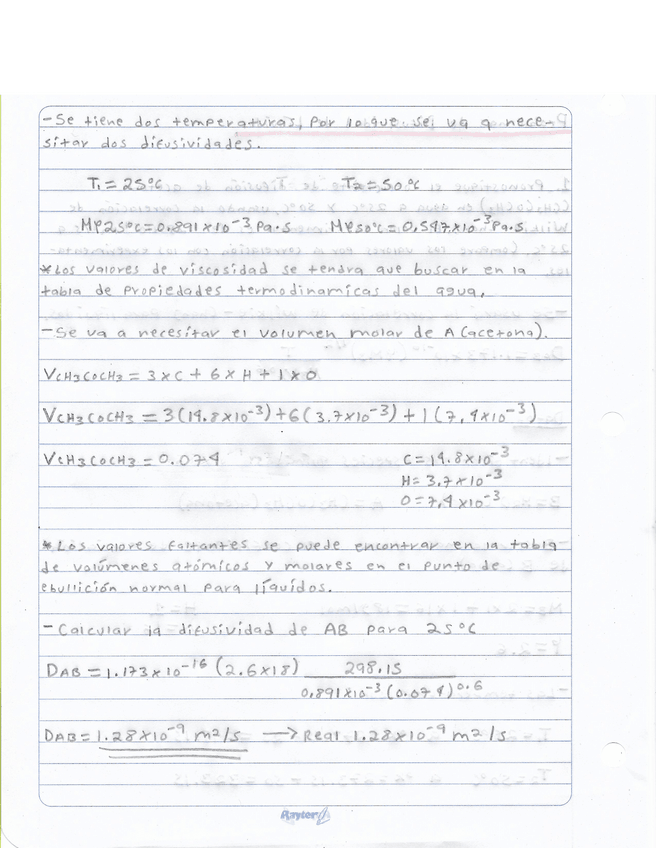 -Se tiene dos temperaturas, por lo que se va a nece-
sitar dos difusividades.
T1=25°C T2=50°C
Mρ25°C=0.891x10⁻³Pa·s Mρ50°C=0.547x10⁻³Pa·s
*Los valores de viscosidad se tendra que buscar en la
tabla de propiedades termodinamicas del agua,
-Se va a necesitar el volumen molar de A (acetona).
VCH3COCH3 = 3xC + 6xH + 1x0
VCH3COCH3 = 3(14.8x10⁻³)+6(3.7x10⁻³)+1(7,4x10⁻³)
VCH3COCH3 = 0.074 C=14.8x10⁻³
H=3,7x10⁻³
O=7,4x10⁻³
*Los valores faltantes se puede encontrar en la tabla
de volúmenes atómicos y molares en el punto de
ebullición normal para líquidos.
-Calcular la difusividad de AB para 25°C
DAB=1.173x10⁻¹⁶(2.6x18) 298.15
0,891x10⁻³(0.074)0.6
DAB=1.28x10⁻⁹m²/s → Real 1.28x10⁻⁹m²/s
Rayter